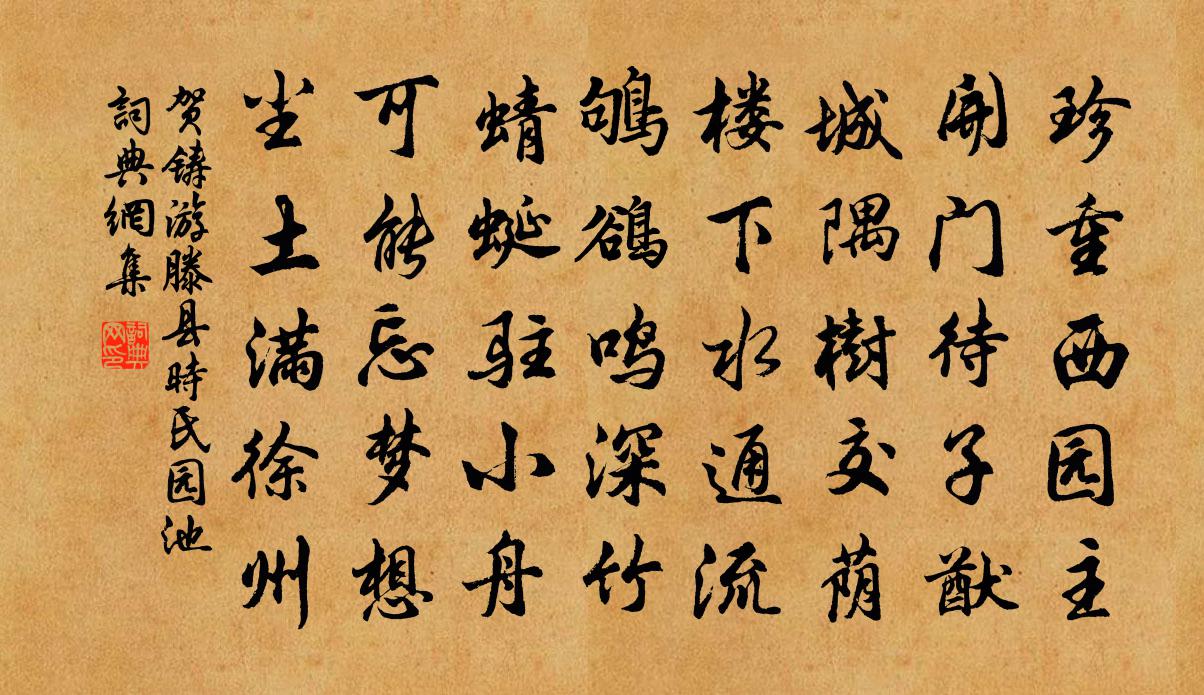 珍重西园主
開门待子猷
城隅樹交荫
楼下水通流
鴝鵒鸣深竹
蜻蜓驻小舟
可能忘梦想
尘土满徐州
贺铸游滕县時民园池
詞典網集
詞典网印